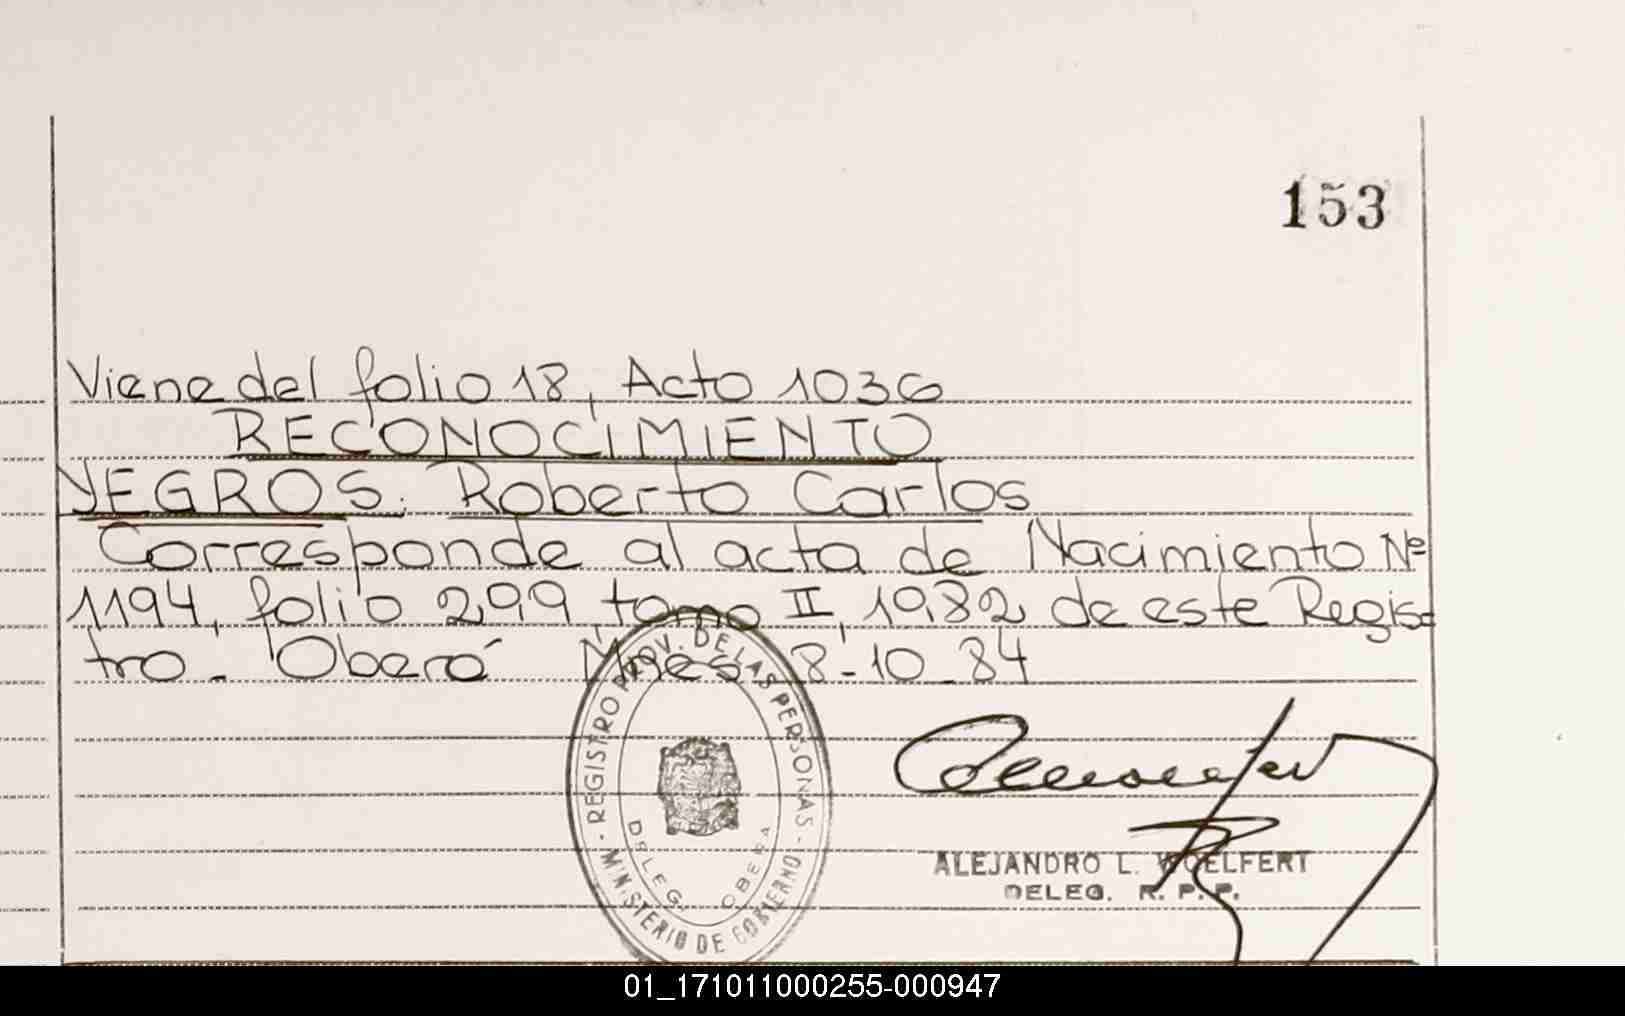 153
Viene del folio 18, Acto 1036
RECONOCIMIENTO
YEGROS: Roberto Carlos
Corresponde al acta de Nacimiento Nº
1194, folio 299 tomo II, 1982 de este Regis-
tro. Oberá Mnes 8-10-84
REGISTRO PROV. DE LAS PERSONAS
MINISTERIO DE GOBIERNO
DELEG. OBERA
ALEJANDRO L. WOELFERT
DELEG. R. P. P.
01_171011000255-000947